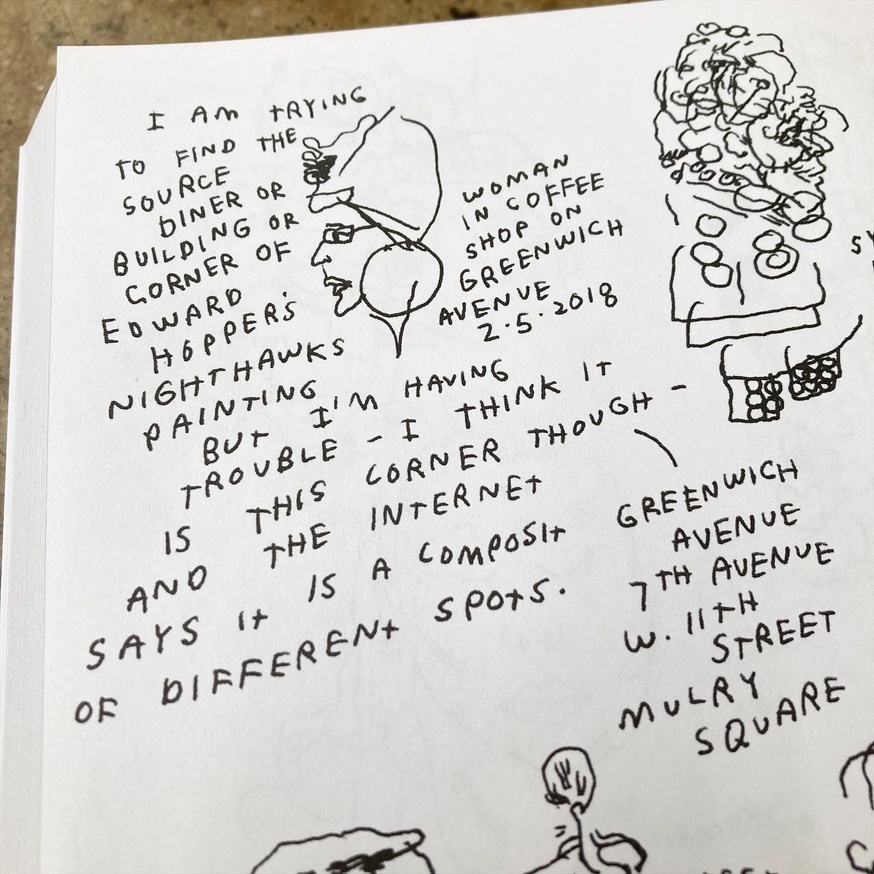 I AM TRYING
TO FIND THE
SOURCE
DINER OR
BUILDING OR
CORNER OF
EDWARD
HOPPER'S
NIGHTHAWKS
PAINTING
BUT I'M HAVING
TROUBLE - I THINK IT
IS THIS CORNER THOUGH -
AND THE INTERNET
SAYS IT IS A COMPOSIT
OF DIFFERENT SPOTS.
WOMAN
IN COFFEE
SHOP ON
GREENWICH
AVENUE
2.5.2018
GREENWICH
AVENUE
7TH AVENUE
W. 11TH
STREET
MULRY
SQUARE